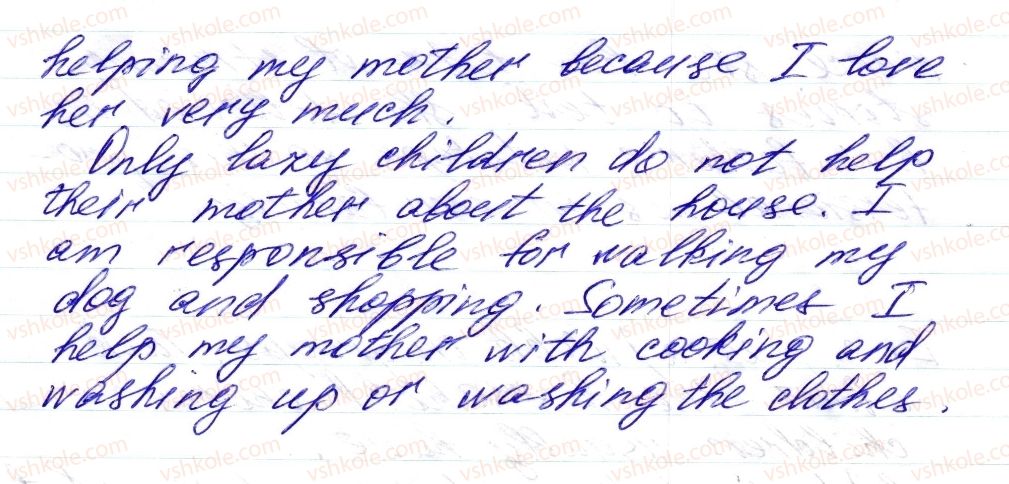 helping my mother because I love
her very much.
Only lazy children do not help
their mother about the house. I
am responsible for walking my
dog and shopping. Sometimes I
help my mother with cooking and
washing up or washing the clothes.
vshkole.com